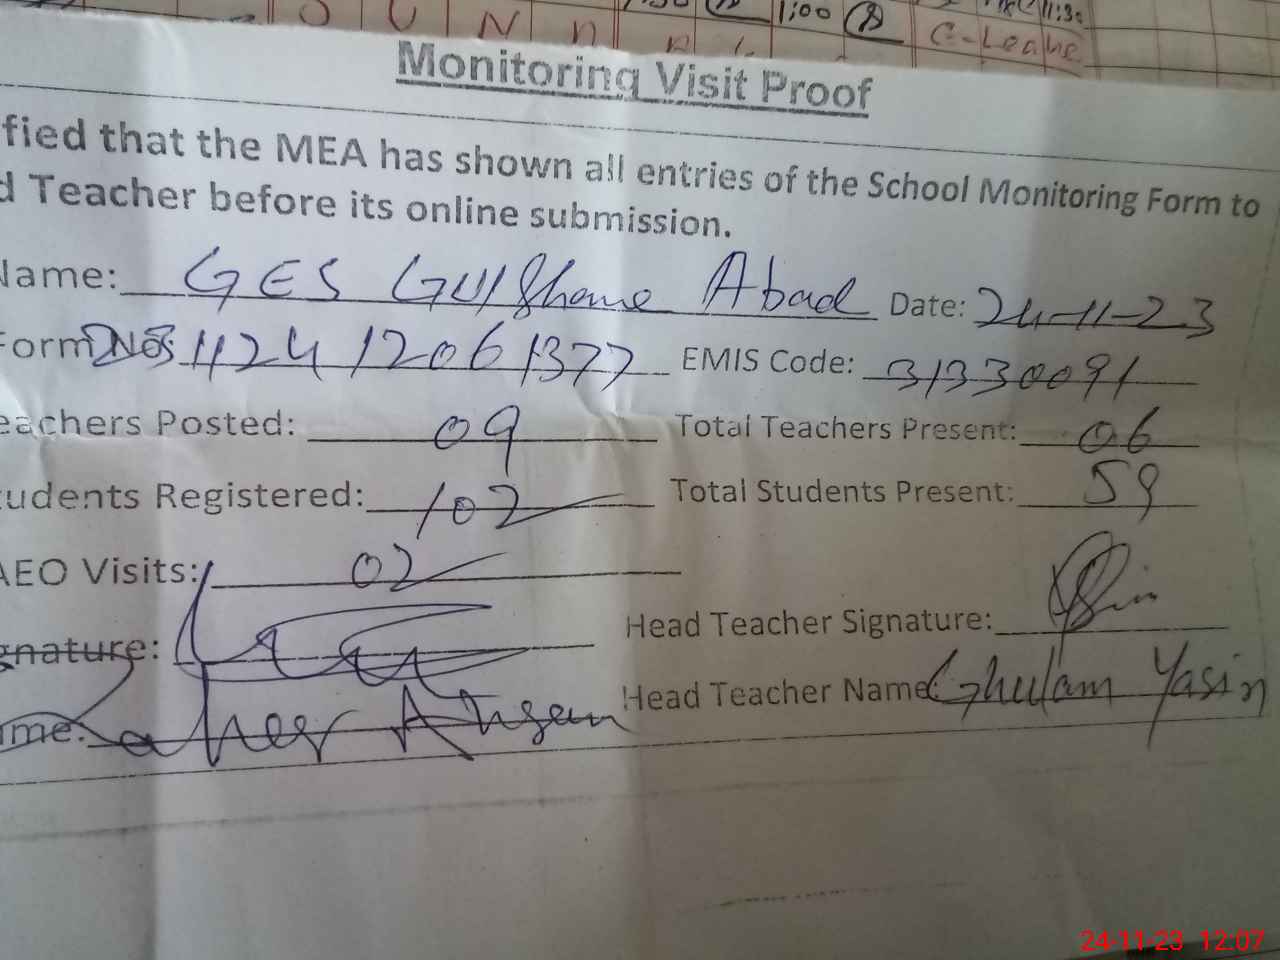 S U N D A Y
1:00
11:30
C-Leave
Monitoring Visit Proof
fied that the MEA has shown all entries of the School Monitoring Form to
d Teacher before its online submission.
Name: GES Gulshane Abad Date: 24-11-23
Form No: 1124 12061377 EMIS Code: 31330091
eachers Posted: 09 Total Teachers Present: 06
tudents Registered: 102 Total Students Present: 59
AEO Visits: 02
gnature: Head Teacher Signature:
me: Ahsan Head Teacher Name Ghulam Yasin
24-11-23 12:07